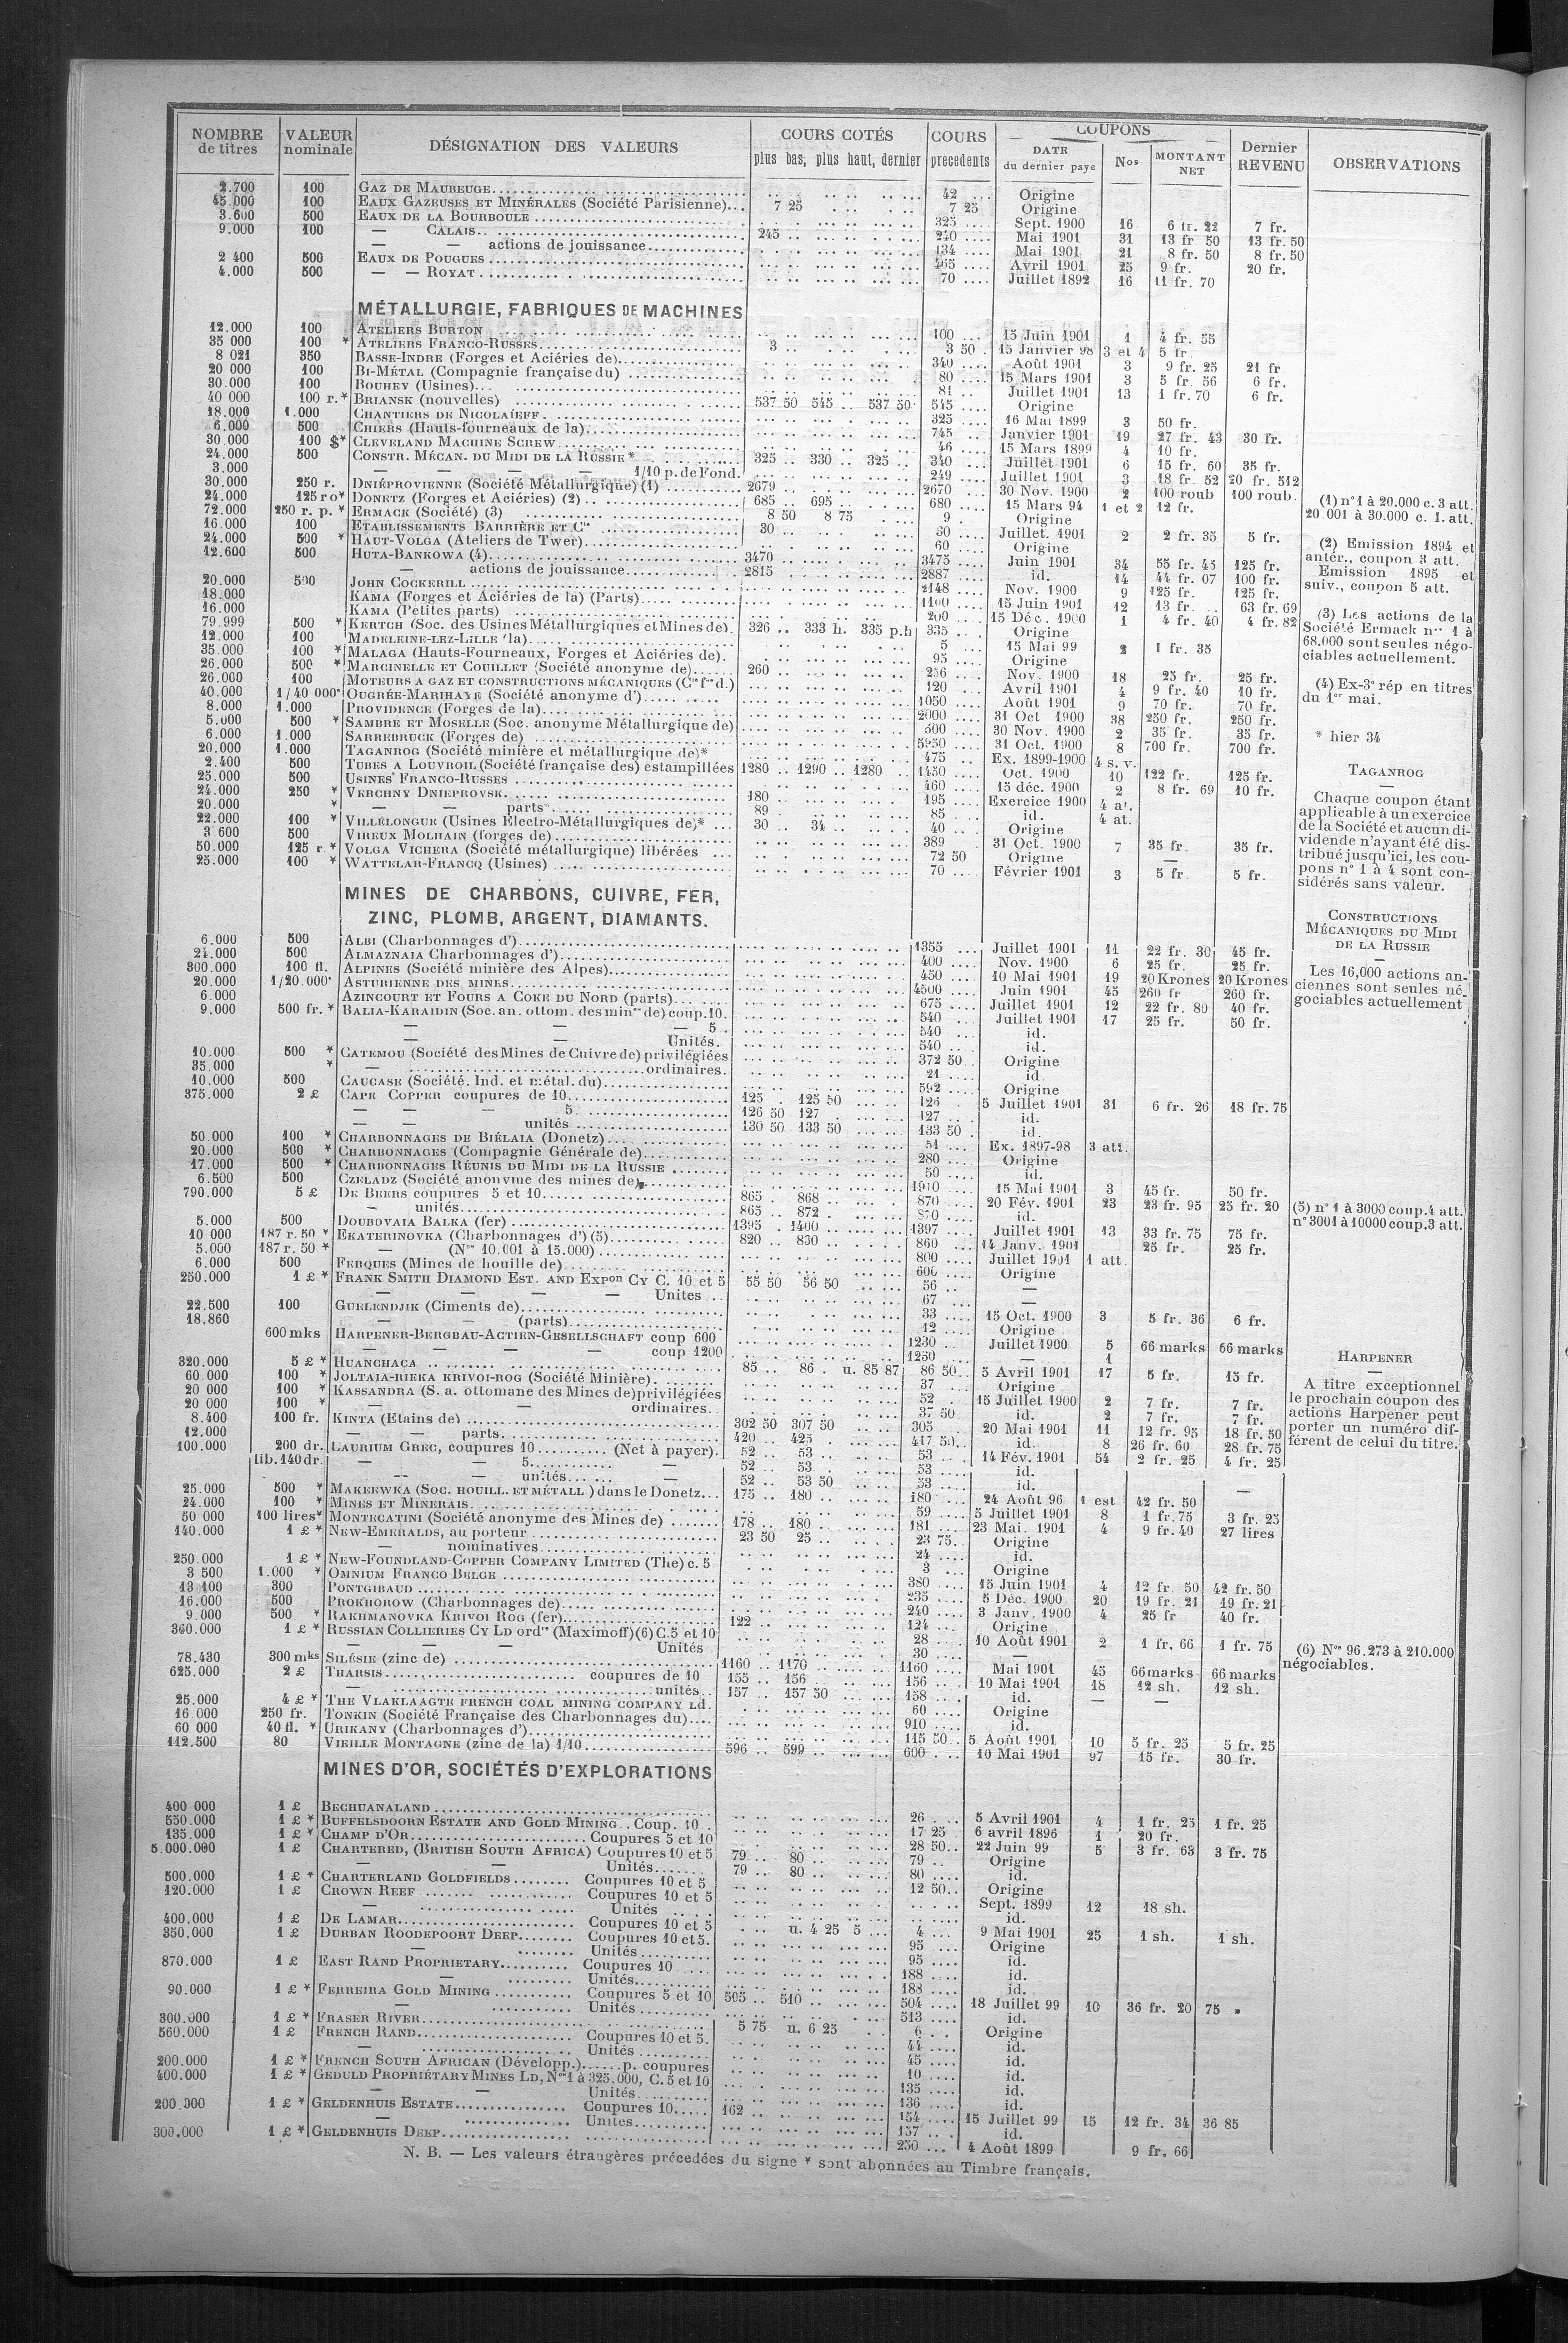 NOMBRE de titres VALEUR nominale DÉSIGNATION DES VALEURS COURS COTÉS plus bas, plus haut, dernier COURS precedents COUPONS DATE du dernier paye Nos MONTANT NET Dernier REVENU OBSERVATIONS
2.700 100 GAZ DE MAUBEUGE 42 Origine
45.000 100 EAUX GAZEUSES ET MINÉRALES (Société Parisienne) 7 25 7 25 Origine
3.600 500 EAUX DE LA BOURBOULE 325 Sept. 1900 16 6 fr. 22 7 fr.
9.000 100 — CALAIS 245 240 Mai 1901 31 13 fr 50 13 fr. 50
— — actions de jouissance 134 Mai 1901 21 8 fr. 50 8 fr. 50
2 400 500 EAUX DE POUGUES 465 Avril 1901 25 9 fr. 20 fr.
4.000 500 — — ROYAT 70 Juillet 1892 16 11 fr. 70
MÉTALLURGIE, FABRIQUES DE MACHINES
12.000 100 ATELIERS BURTON 100 15 Juin 1901 1 4 fr. 55
35 000 100 * ATELIERS FRANCO-RUSSES 3 3 50 15 Janvier 98 3 et 4 5 fr
8 021 350 BASSE-INDRE (Forges et Aciéries de) 340 Août 1901 3 9 fr. 25 21 fr
20 000 100 BI-MÉTAL (Compagnie française du) 80 15 Mars 1901 3 5 fr. 56 6 fr.
30.000 100 BOUHEY (Usines) 81 Juillet 1901 13 1 fr. 70 6 fr.
40 000 100 r.* BRIANSK (nouvelles) 537 50 545 537 50 545 Origine
18.000 1.000 CHANTIERS DE NICOLAÏEFF 325 16 Mai 1899 3 50 fr.
6.000 500 CHIERS (Hauts-fourneaux de la) 745 Janvier 1901 19 27 fr. 43 30 fr.
30 000 100 $* CLEVELAND MACHINE SCREW 46 15 Mars 1899 4 10 fr.
24.000 500 CONSTR. MÉCAN. DU MIDI DE LA RUSSIE * 325 330 325 340 Juillet 1901 6 15 fr. 60 35 fr.
3.000 — — — — 1/10 p. de Fond. 249 Juillet 1901 3 18 fr. 52 20 fr. 512
30.000 250 r. DNIÉPROVIENNE (Société Métallurgique) (1) 2679 2670 30 Nov. 1900 2 100 roub 100 roub.
24.000 125 ro* DONETZ (Forges et Aciéries) (2) 685 695 680 15 Mars 94 1 et 2 12 fr.
72.000 250 r. p. * ERMACK (Société) (3) 8 50 8 75 9 Origine
16.000 100 ETABLISSEMENTS BARRIÈRE ET Cie 30 30 Juillet. 1901 2 2 fr. 35 5 fr.
24.000 500 * HAUT-VOLGA (Ateliers de Twer) 60 Origine
12.600 500 HUTA-BANKOWA (4) 3470 3475 Juin 1901 34 55 fr. 43 125 fr.
— actions de jouissance 2815 2887 id. 14 44 fr. 07 100 fr.
20.000 500 JOHN COCKERILL 2148 Nov. 1900 9 125 fr. 125 fr.
18.000 KAMA (Forges et Aciéries de la) (Parts) 1100 15 Juin 1901 12 13 fr. 63 fr. 69
16.000 KAMA (Petites parts) 200 15 Déc. 1900 1 4 fr. 40 4 fr. 82
79.999 500 * KERTCH (Soc. des Usines Métallurgiques et Mines de) 326 333 h. 335 p.h 335 Origine
12.000 100 MADELEINE-LEZ-LILLE (la) 5 15 Mai 99 2 1 fr. 35
35.000 100 * MALAGA (Hauts-Fourneaux, Forges et Aciéries de) 95 Origine
26.000 500 * MARCINELLE ET COUILLET (Société anonyme de) 260 256 Nov. 1900 18 25 fr. 25 fr.
26.000 100 MOTEURS A GAZ ET CONSTRUCTIONS MÉCANIQUES (Cie fse d.) 120 Avril 1901 4 9 fr. 40 10 fr.
40.000 1/40 000e OUGRÉE-MARIHAYE (Société anonyme d') 1050 Août 1901 9 70 fr. 70 fr.
8.000 1.000 PROVIDENCE (Forges de la) 2000 31 Oct 1900 38 250 fr. 250 fr.
5.000 500 * SAMBRE ET MOSELLE (Soc. anonyme Métallurgique de) 500 30 Nov. 1900 2 35 fr. 35 fr.
6.000 1.000 SARREBRUCK (Forges de) 5950 31 Oct. 1900 8 700 fr. 700 fr.
20.000 1.000 TAGANROG (Société minière et métallurgique de)* 475 Ex. 1899-1900 4 s. v.
2.400 500 TUBES A LOUVROIL (Société française des) estampillées 1280 1290 1280 1450 Oct. 1900 10 122 fr. 125 fr.
25.000 500 USINES FRANCO-RUSSES 460 15 déc. 1900 2 8 fr. 69 10 fr.
24.000 250 * VERCHNY DNIEPROVSK 180 195 Exercice 1900 4 at.
20.000 * — — parts 89 85 id. 4 at.
22.000 100 * VILLÉLONGUE (Usines Electro-Métallurgiques de)* 30 34 40 Origine
3 600 500 VIREUX MOLHAIN (forges de) 389 31 Oct. 1900 7 35 fr. 35 fr.
50.000 125 r.* VOLGA VICHERA (Société métallurgique) libérées 72 50 Origine —
25.000 100 * WATTELAR-FRANCQ (Usines) 70 Février 1901 3 5 fr. 5 fr.
MINES DE CHARBONS, CUIVRE, FER,
ZINC, PLOMB, ARGENT, DIAMANTS.
6.000 500 ALBI (Charbonnages d') 1355 Juillet 1901 11 22 fr. 30 45 fr.
24.000 500 ALMAZNAIA Charbonnages d') 400 Nov. 1900 6 25 fr. 25 fr.
300.000 100 fl. ALPINES (Société minière des Alpes) 450 10 Mai 1901 19 20 Krones 20 Krones
20.000 1/20.000e ASTURIENNE DES MINES 4500 Juin 1901 45 260 fr 260 fr.
6.000 AZINCOURT ET FOURS A COKE DU NORD (parts) 675 Juillet 1901 12 22 fr. 80 40 fr.
9.000 500 fr. * BALIA-KARAIDIN (Soc. an. ottom. des mines de) coup. 10. 540 Juillet 1901 17 25 fr. 50 fr.
— — — 5. 540 id.
— — Unités. 540 id.
10.000 500 * CATEMOU (Société des Mines de Cuivre de) privilégiées 372 50 Origine
35.000 * — ordinaires. 21 id.
10.000 500 CAUCASE (Société. Ind. et métal. du) 592 Origine
375.000 2 £ CAPE COPPER coupures de 10 125 125 50 126 5 Juillet 1901 31 6 fr. 26 18 fr. 75
— — — 5. 126 50 127 127 id.
— — unités 130 50 133 50 133 50 id.
50.000 100 * CHARBONNAGES DE BIÉLAIA (Donetz) 51 Ex. 1897-98 3 att.
20.000 500 * CHARBONNAGES (Compagnie Générale de) 280 Origine
17.000 500 * CHARBONNAGES RÉUNIS DU MIDI DE LA RUSSIE 50 id.
6.500 500 CZELADZ (Société anonyme des mines de) 1910 15 Mai 1901 3 45 fr. 50 fr.
790.000 5 £ DE BEERS coupures 5 et 10 865 868 870 20 Fév. 1901 23 23 fr. 95 25 fr. 20
— unités 865 872 870 id.
5.000 500 DOUBOVAIA BALKA (fer) 1395 1400 1397 Juillet 1901 13 33 fr. 75 75 fr.
10 000 187 r. 50 * EKATERINOVKA (Charbonnages d') (5) 820 830 860 14 Janv. 1901 25 fr. 25 fr.
5.000 187 r. 50 * — (Nos 10.001 à 15.000) 800 Juillet 1901 1 att.
6.000 500 FERQUES (Mines de houille de) 600 Origine
250.000 1 £ * FRANK SMITH DIAMOND EST. AND EXPon CY C. 10 et 5 55 50 56 50 56 —
— — — — Unites 67 —
22.500 100 GUELENDJIK (Ciments de) 33 15 Oct. 1900 3 5 fr. 36 6 fr.
18.860 — — (parts) 12 Origine
600 mks HARPENER-BERGBAU-ACTIEN-GESELLSCHAFT coup 600 1230 Juillet 1900 5 66 marks 66 marks
— — — — coup 1200 1250 — 1
320.000 5 £ * HUANCHACA 85 86 u. 85 87 86 50 5 Avril 1901 17 5 fr. 15 fr.
60.000 100 * JOLTAIA-RIEKA KRIVOI-ROG (Société Minière) 37 Origine
20 000 100 * KASSANDRA (S. a. ottomane des Mines de) privilégiées 52 15 Juillet 1900 2 7 fr. 7 fr.
20 000 100 * — — ordinaires. 37 50 id. 2 7 fr. 7 fr.
8.400 100 fr. KINTA (Etains de) 302 50 307 50 305 20 Mai 1901 11 12 fr. 95 18 fr. 50
— — parts 420 425 417 50 id. 8 26 fr. 60 28 fr. 75
100.000 200 dr. LAURIUM GREC, coupures 10 (Net à payer). 52 53 53 14 Fév. 1901 54 2 fr. 25 4 fr. 25
lib. 140 dr. — — 5 — 52 53 53 id.
— — unités — 52 53 50 53 id.
25.000 500 * MAKEEWKA (SOC. HOUILL. ET MÉTALL) dans le Donetz 175 180 180 24 Août 96 1 est 42 fr. 50 —
24.000 100 * MINES ET MINERAIS 59 5 Juillet 1901 8 1 fr. 75 3 fr. 25
50 000 100 lires* MONTECATINI (Société anonyme des Mines de) 178 180 181 23 Mai. 1901 4 9 fr. 40 27 lires
140.000 1 £ * NEW-EMERALDS, au porteur 23 50 25 23 75 Origine
— nominatives 24 id.
250.000 1 £ * NEW-FOUNDLAND-COPPER COMPANY LIMITED (The) c. 5 3 Origine
3 500 1.000 * OMNIUM FRANCO BELGE 380 15 Juin 1901 4 12 fr. 50 42 fr. 50
13 100 300 PONTGIBAUD 235 5 Déc. 1900 20 19 fr. 21 19 fr. 21
16.000 500 PROKHOROW (Charbonnages de) 240 3 Janv. 1900 4 25 fr 40 fr.
9.000 500 * RAKHMANOVKA KRIVOI ROG (fer) 122 124 Origine
360.000 1 £ * RUSSIAN COLLIERIES CY LD ordres (Maximoff) (6) C. 5 et 10 28 10 Août 1901 2 1 fr. 66 1 fr. 75
— — — Unités 30 —
78.430 300 mks SILÉSIE (zinc de) 1160 1170 1160 Mai 1901 45 66 marks 66 marks
625.000 2 £ THARSIS coupures de 10 155 156 156 10 Mai 1901 18 12 sh. 12 sh.
— unités 157 157 50 158 id. — —
25.000 4 £ * THE VLAKLAAGTE FRENCH COAL MINING COMPANY Ld. 60 Origine
16 000 250 fr. TONKIN (Société Française des Charbonnages du) 910 id.
60 000 40 fl. * URIKANY (Charbonnages d') 115 50 5 Août 1901 10 5 fr. 25 5 fr. 25
112.500 80 VIEILLE MONTAGNE (zinc de la) 1/10 596 599 600 10 Mai 1901 97 15 fr. 30 fr.
MINES D'OR, SOCIÉTÉS D'EXPLORATIONS
400 000 1 £ BECHUANALAND 26 5 Avril 1901 4 1 fr. 25 1 fr. 25
550.000 1 £ * BUFFELSDOORN ESTATE AND GOLD MINING. Coup. 10 17 25 6 avril 1896 1 20 fr.
135.000 1 £ * CHAMP D'OR Coupures 5 et 10 28 50 22 Juin 99 5 3 fr. 63 3 fr. 75
5.000.000 1 £ CHARTERED, (BRITISH SOUTH AFRICA) Coupures 10 et 5 79 80 79 Origine
— — Unités 79 80 80 id.
500.000 1 £ * CHARTERLAND GOLDFIELDS Coupures 10 et 5 12 50 Origine
120.000 1 £ CROWN REEF Coupures 10 et 5 Sept. 1899 12 18 sh.
— Unités id.
400.000 1 £ DE LAMAR Coupures 10 et 5 u. 4 25 5 4 9 Mai 1901 25 1 sh. 1 sh.
350.000 1 £ DURBAN ROODEPOORT DEEP Coupures 10 et 5. 95 Origine
— Unités 95 id.
870.000 1 £ EAST RAND PROPRIETARY Coupures 10 188 id.
— Unités 188 id.
90.000 1 £ * FERREIRA GOLD MINING Coupures 5 et 10 505 510 504 18 Juillet 99 10 36 fr. 20 75 »
— Unités 513 id.
300.000 1 £ * FRASER RIVER 5 75 u. 6 25 6 Origine
560.000 1 £ FRENCH RAND Coupures 10 et 5. 44 id.
— Unités 45 id.
200.000 1 £ * FRENCH SOUTH AFRICAN (Développ.) p. coupures 10 id.
400.000 1 £ * GEDULD PROPRIÉTARY MINES LD, Nos 1 à 325.000, C. 5 et 10 135 id.
— — Unités 136 id.
200.000 1 £ * GELDENHUIS ESTATE Coupures 10 162 154 15 Juillet 99 15 12 fr. 34 36 85
— Unités 157 id.
300.000 1 £ * GELDENHUIS DEEP 250 4 Août 1899 9 fr. 66
(1) n° 1 à 20.000 c. 3 att.
20.001 à 30.000 c. 1. att.
(2) Emission 1894 et
antér., coupon 3 att.
Emission 1895 et
suiv., coupon 5 att.
(3) Les actions de la
Société Ermack nos 1 à
68.000 sont seules négo-
ciables actuellement.
(4) Ex-3e rép en titres
du 1er mai.
* hier 34
TAGANROG
—
Chaque coupon étant
applicable à un exercice
de la Société et aucun di-
vidende n'ayant été dis-
tribué jusqu'ici, les cou-
pons n° 1 à 4 sont con-
sidérés sans valeur.
CONSTRUCTIONS
MÉCANIQUES DU MIDI
DE LA RUSSIE
—
Les 16,000 actions an-
ciennes sont seules né-
gociables actuellement.
(5) n° 1 à 3000 coup. 4 att.
n° 3001 à 10000 coup. 3 att.
HARPENER
—
A titre exceptionnel
le prochain coupon des
actions Harpener peut
porter un numéro dif-
férent de celui du titre.
(6) Nos 96.273 à 210.000
négociables.
N. B. — Les valeurs étrangères précedées du signe * sont abonnées au Timbre français.